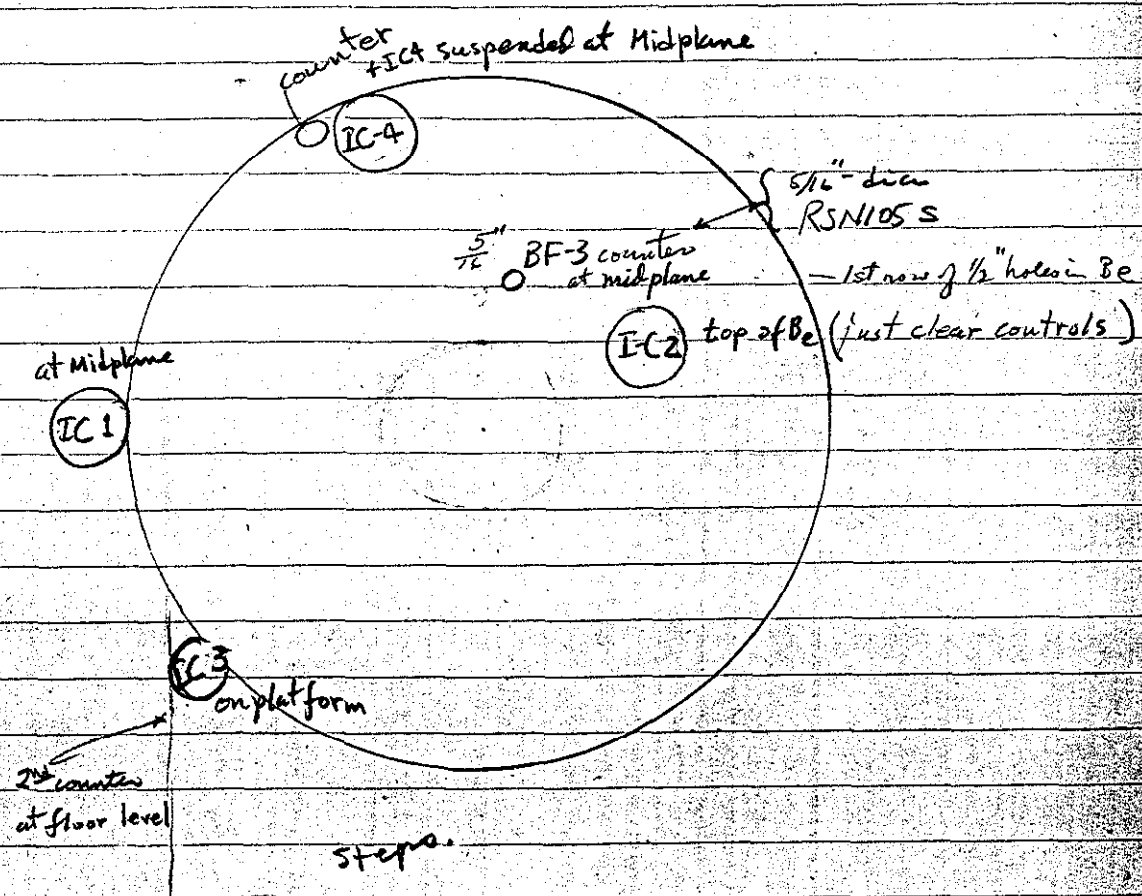 counter
+IC4 suspended at Midplane
IC-4
5/16"-dia
RSN105 S
5/16" BF-3 counter
at midplane
— 1st row of 1/2" holes in Be
I-C2 top of Be (just clear controls)
at Midplane
IC 1
IC 3
on platform
2nd counter
at floor level
steps.